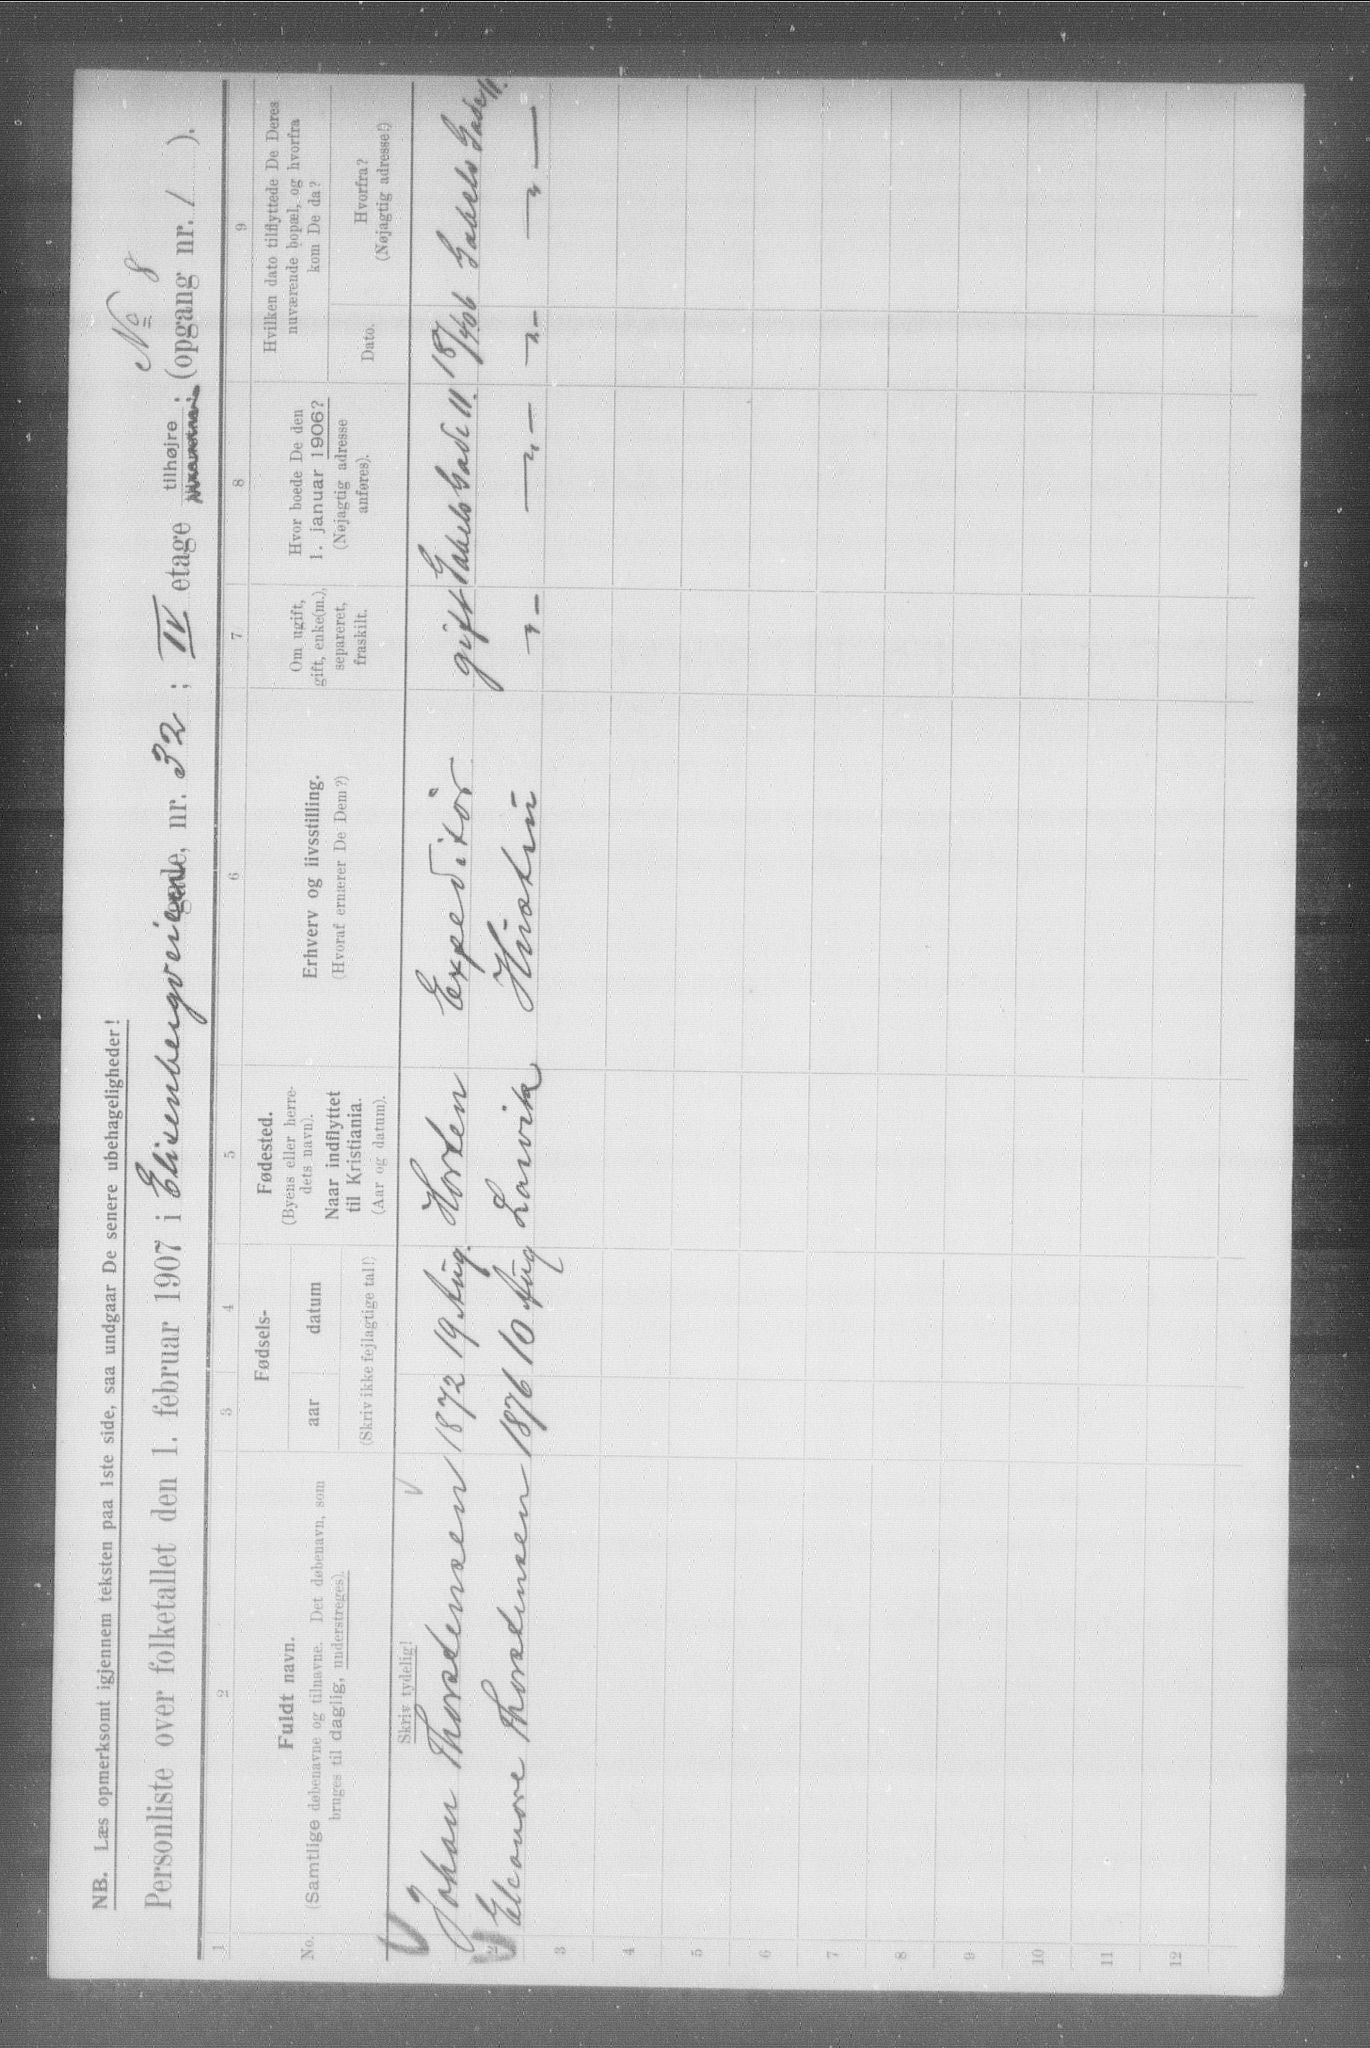 NB. Læs opmerksomt igjennem teksten paa 1ste side, saa undgaar De senere ubehageligheder!
No 8
Personliste over folketallet den 1. februar 1907 i Elisenbergveien gade, nr. 32 ; IV etage tilhøjre ; (opgang nr. 1 ).
1 2 3 4 5 6 7 8 9
No.
Fuldt navn.
(Samtlige døbenavne og tilnavne. Det døbenavn, som
bruges til daglig, understreges).
Fødsels-
aar datum
(Skriv ikke fejlagtige tal!)
Fødested.
(Byens eller herre-
dets navn).
Naar indflyttet
til Kristiania.
(Aar og datum).
Erhverv og livsstilling.
(Hvoraf ernærer De Dem?)
Om ugift,
gift, enke(m.),
separeret,
fraskilt.
Hvor boede De den
1. januar 1906?
(Nøjagtig adresse
anføres).
Hvilken dato tilflyttede De Deres
nuværende bopæl, og hvorfra
kom De da?
Dato.
Hvorfra?
(Nøjagtig adresse!)
Skriv tydelig!
Johan Thorstensen 1872 19 Aug. Horten Expeditör gift Gabels Gade 11. 18/4 06 Gabels Gade 11.
2 Eleonore Thorstensen 1876 10 Aug Larvik Hustru — „ — — „ — — „ — — „ —
3
4
5
6
7
8
9
10
11
12